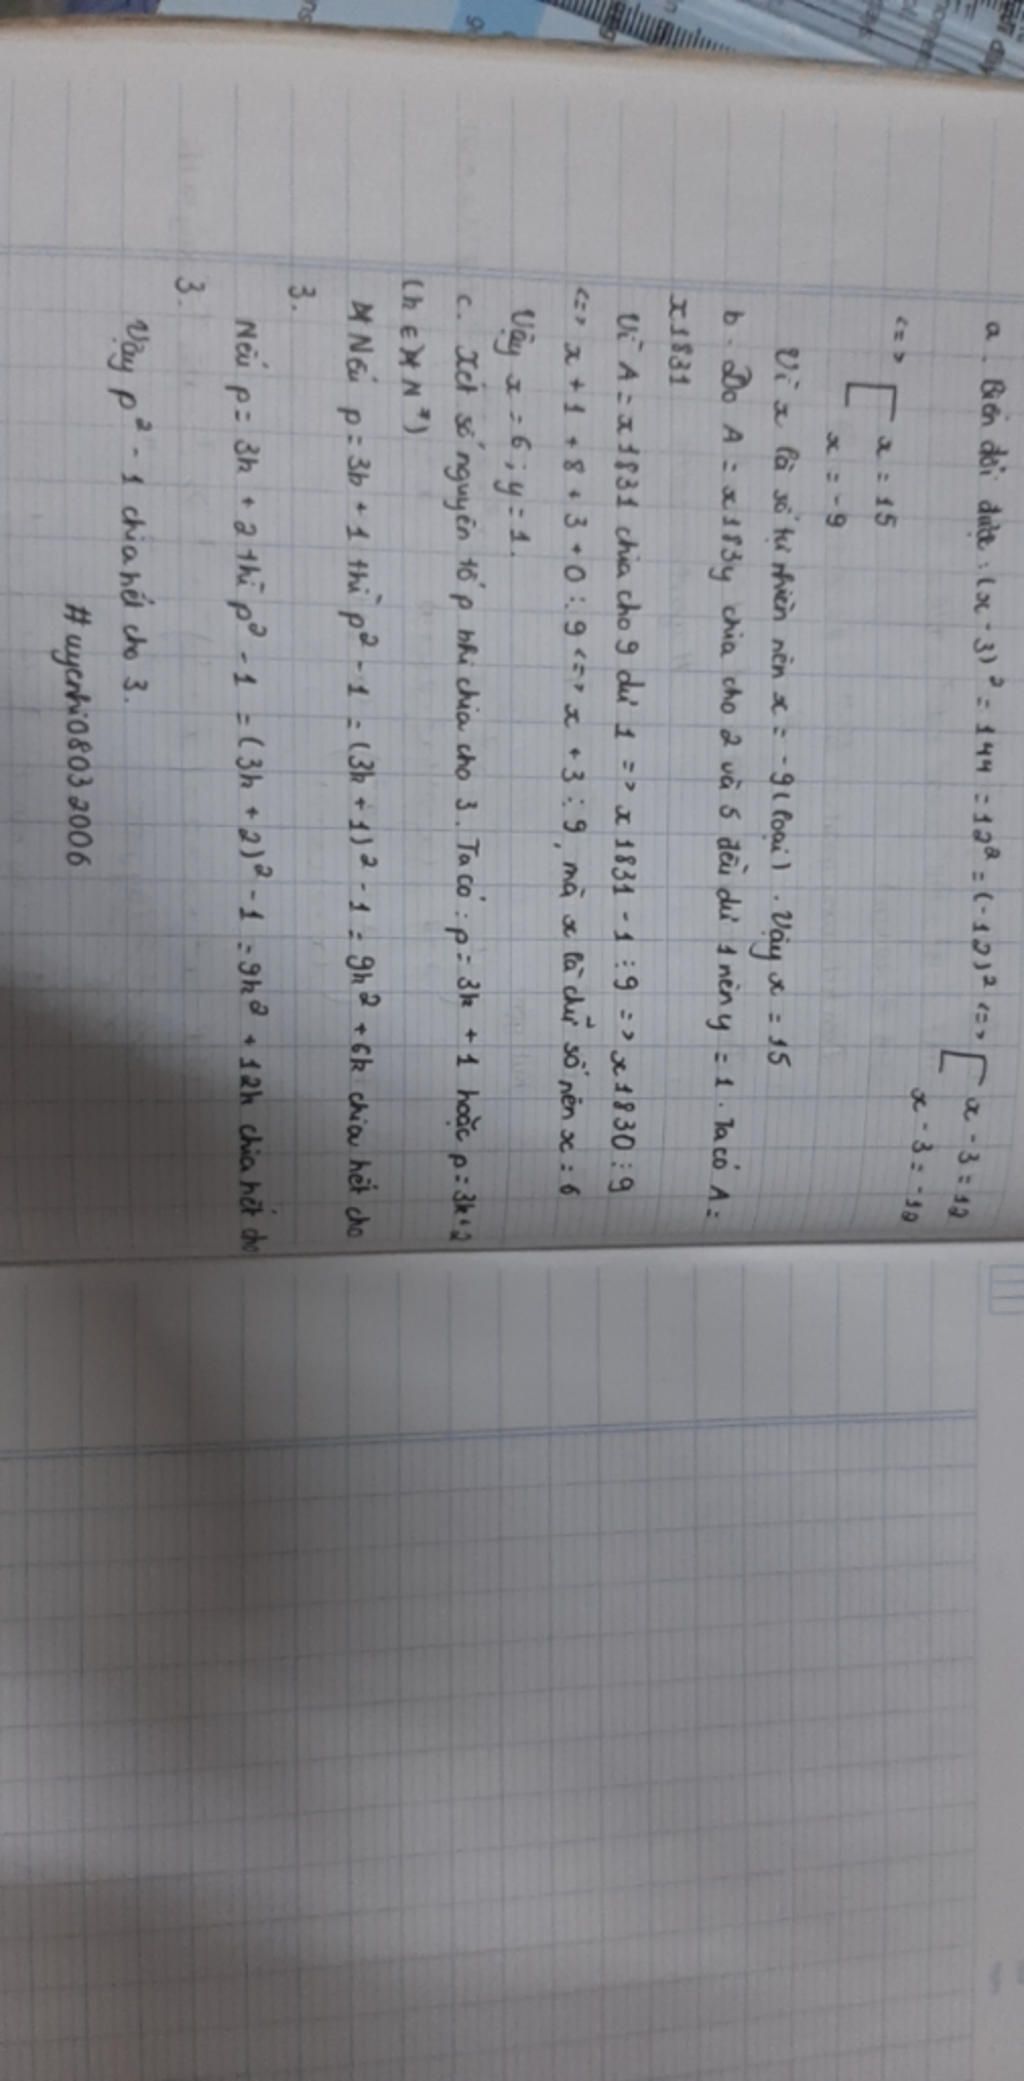 a. Biến đổi được: (x - 3)² = 144 = 12² = (-12)² <=> [ x - 3 = 12
x - 3 = -12
<=> [ x = 15
x = -9
Vì x là số tự nhiên nên x = -9 (loại). Vậy x = 15
b. Do A = x183y chia cho 2 và 5 đều dư 1 nên y = 1. Ta có A =
x1831
Vì A = x1831 chia cho 9 dư 1 => x1831 - 1 ⋮ 9 => x1830 ⋮ 9
<=> x + 1 + 8 + 3 + 0 ⋮ 9 <=> x + 3 ⋮ 9, mà x là chữ số nên x = 6
Vậy x = 6; y = 1.
c. Xét số nguyên tố p khi chia cho 3. Ta có: p = 3k + 1 hoặc p = 3k + 2
(k ∈ N*)
Nếu p = 3k + 1 thì p² - 1 = (3k + 1)² - 1 = 9k² + 6k chia hết cho
3.
Nếu p = 3k + 2 thì p² - 1 = (3k + 2)² - 1 = 9k² + 12k chia hết cho
3.
Vậy p² - 1 chia hết cho 3.
#uyenhi08032006